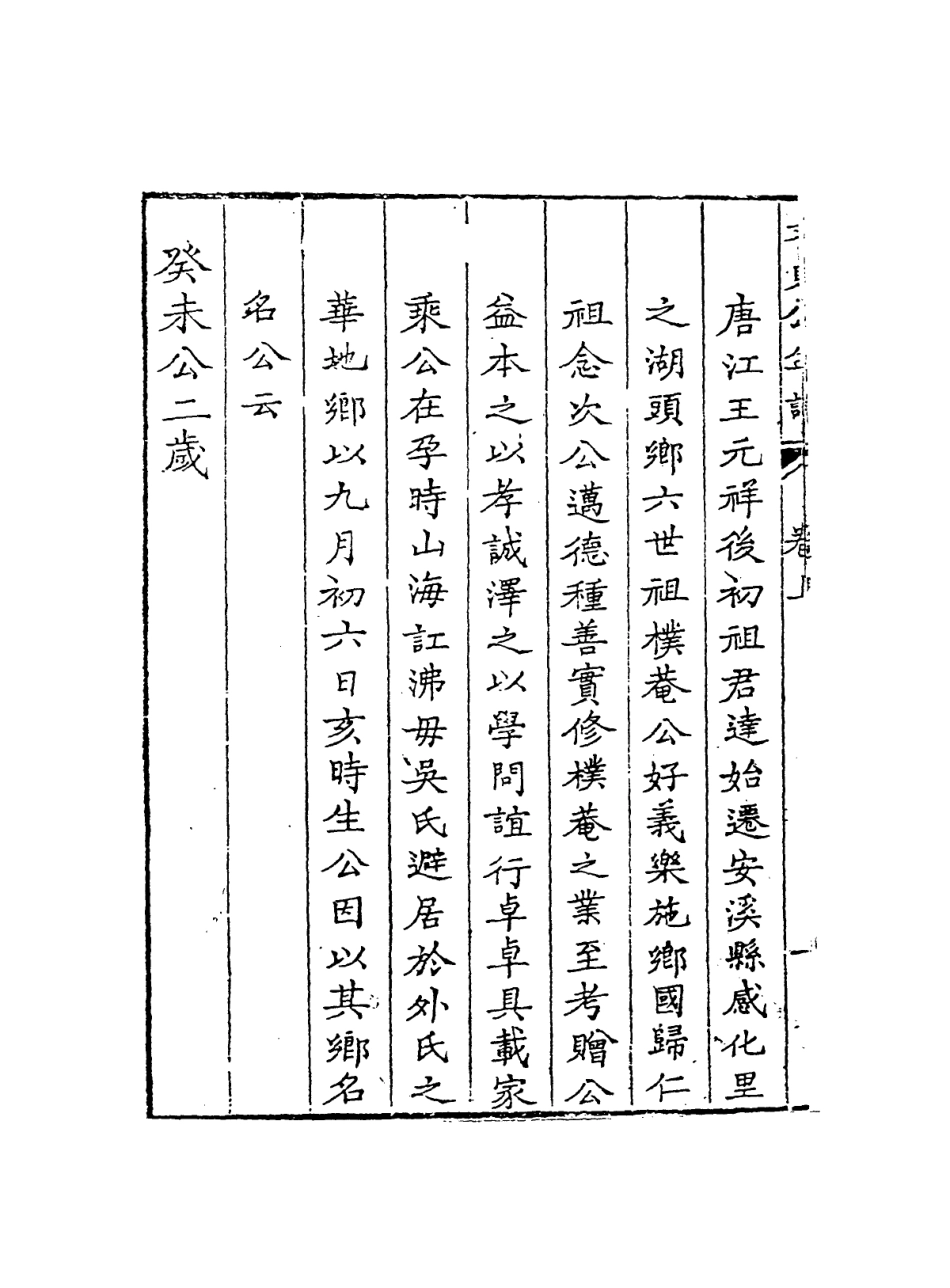 唐江王元祥後初祖君達始遷安溪縣感化里
之湖頭鄉六世祖樸菴公好義樂施鄉國歸仁
祖念次公邁德種善實修樸菴之業至考贈公
益本之以孝誠澤之以學問誼行卓卓具載家
乘公在孕時山海訌沸毋吳氏避居於外氏之
華地鄉以九月初六日亥時生公因以其鄉名
名公云
癸未公二歲